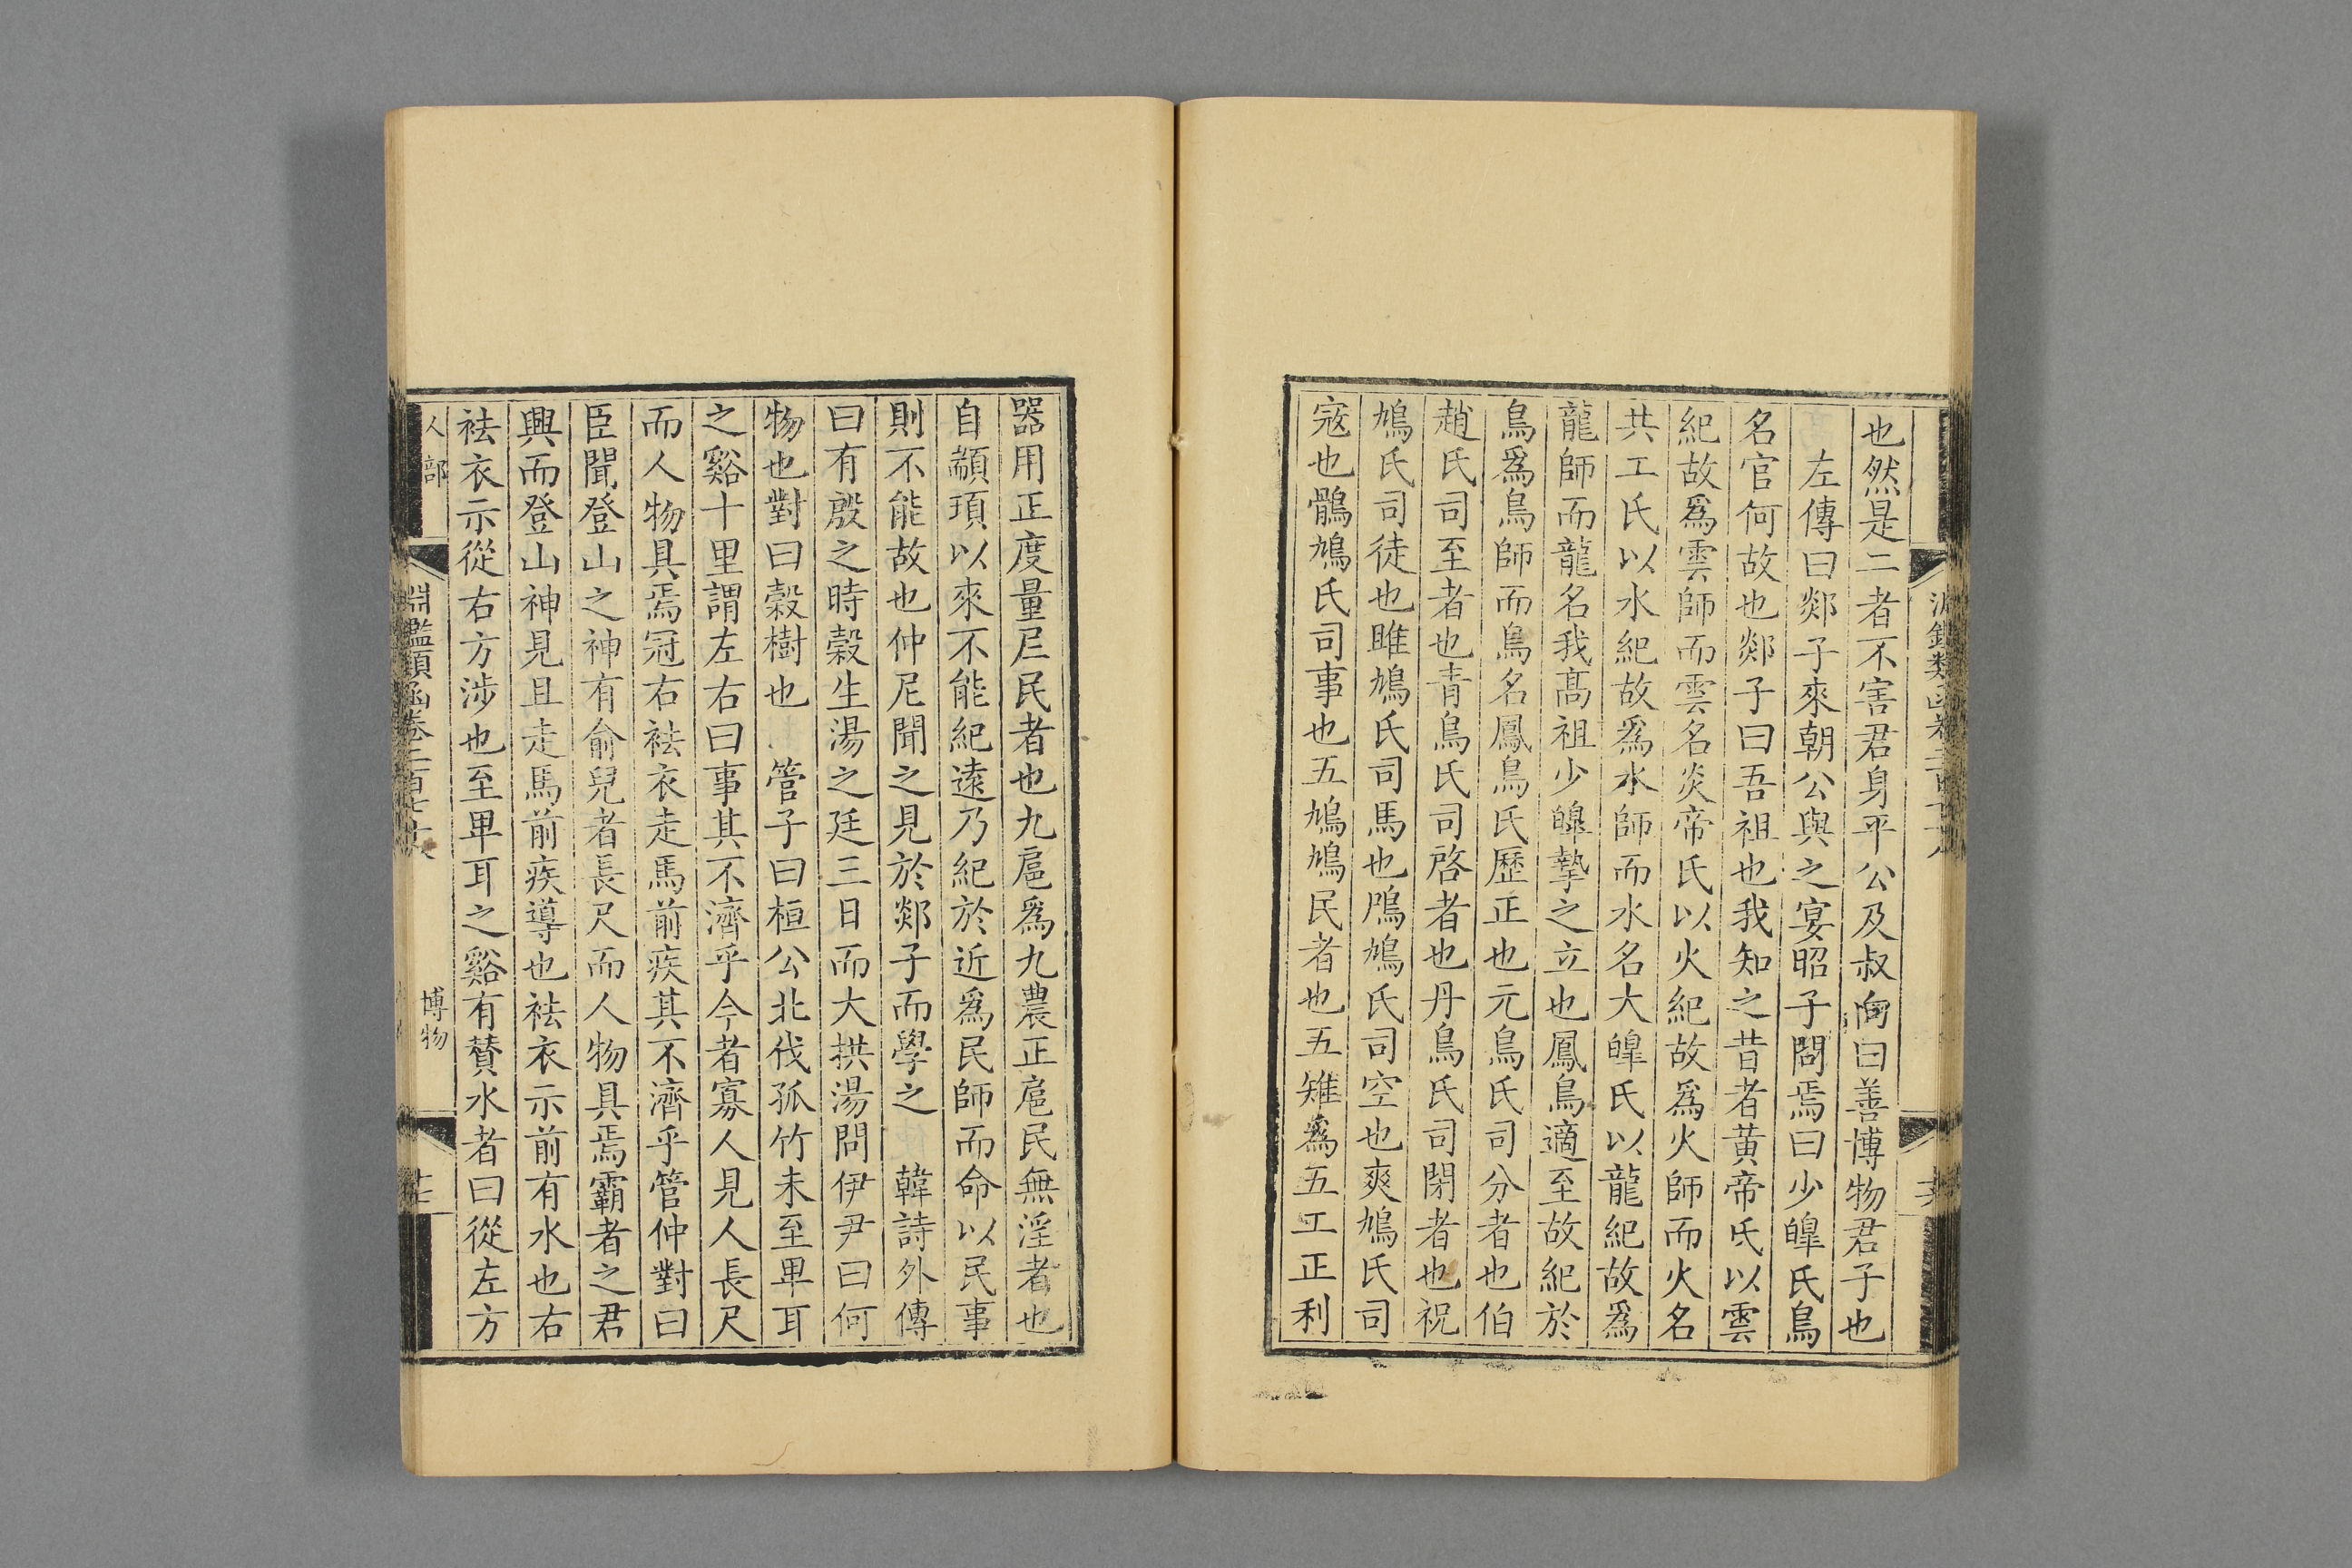 也然是二者不害君身平公及叔向曰善博物君子也
左傳曰郯子來朝公與之宴昭子問焉曰少皥氏鳥
名官何故也郯子曰吾祖也我知之昔者黄帝氏以雲
紀故爲雲師而雲名炎帝氏以火紀故爲火師而火名
共工氏以水紀故爲水師而水名大皥氏以龍紀故爲
龍師而龍名我髙祖少皥摯之立也鳳鳥適至故紀於
鳥爲鳥師而鳥名鳳鳥氏歷正也元鳥氏司分者也伯
趙氏司至者也青鳥氏司啓者也丹鳥氏司閉者也祝
鳩氏司徒也雎鳩氏司馬也鳲鳩氏司空也爽鳩氏司
宼也鶻鳩氏司事也五鳩鳩民者也五雉爲五工正利
器用正度量𡰥民者也九扈爲九農正扈民無淫者也
自顓頊以來不能紀逺乃紀於近爲民師而命以民事
則不能故也仲尼聞之見於郯子而學之 韓詩外傳
曰有殷之時榖生湯之廷三日而大拱湯問伊尹曰何
物也對曰榖樹也 管子曰桓公北伐孤竹未至畢耳
之谿十里謂左右曰事其不濟乎今者寡人見人長尺
而人物具焉冠右袪衣走馬前疾其不濟乎管仲對曰
臣聞登山之神有俞兒者長尺而人物具焉霸者之君
興而登山神見且走馬前疾導也袪衣示前有水也右
袪衣示從右方涉也至畢耳之谿有賛水者曰從左方
人部
淵鑑類函卷二百七十六
博物